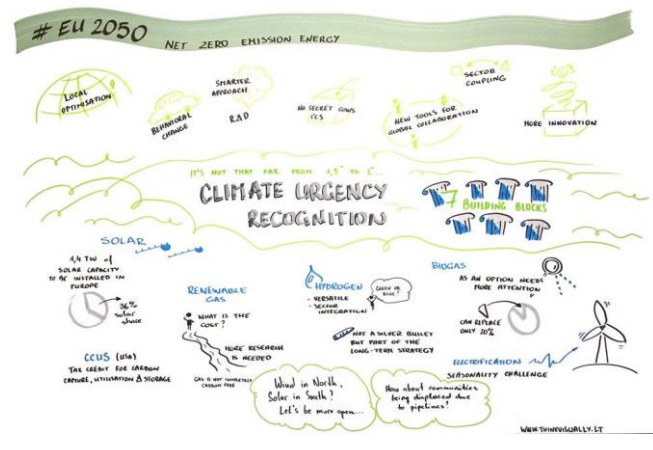 # EU 2050
NET ZERO EMISSION ENERGY
LOCAL
OPTIMISATION
BEHAVIORAL
CHANGE
SMARTER
APPROACH
R&D
NO SECRET COWS
CCS
NEW TOOLS FOR
GLOBAL COLLABORATION
SECTOR
COUPLING
MORE INNOVATION
IT'S NOT THAT FAR FROM 1,5° TO 2°...
CLIMATE URGENCY
RECOGNITION
7
BUILDING BLOCKS
SOLAR
1,4 TW of
SOLAR CAPACITY
TO BE INSTALLED IN
EUROPE
36%
solar
share
CCUS (USA)
TAX CREDIT FOR CARBON
CAPTURE, UTILISATION & STORAGE
RENEWABLE
GAS
WHAT IS THE
COST?
MORE RESEARCH
IS NEEDED
GAS IS NOT COMPLETELY
CARBON FREE
HYDROGEN
- VERSATILE
- SECTOR
INTEGRATION
GREEN OR
BLUE?
NOT A SILVER BULLET
BUT PART OF THE
LONG-TERM STRATEGY
BIOGAS
AS AN OPTION NEEDS
MORE ATTENTION
CAN REPLACE
ONLY 20%
ELECTRIFICATION
SEASONALITY CHALLENGE
Wind in North,
Solar in South?
Let's be more open...
How about communities
being displaced due
to pipelines?
WWW.THINKVISUALLY.LT